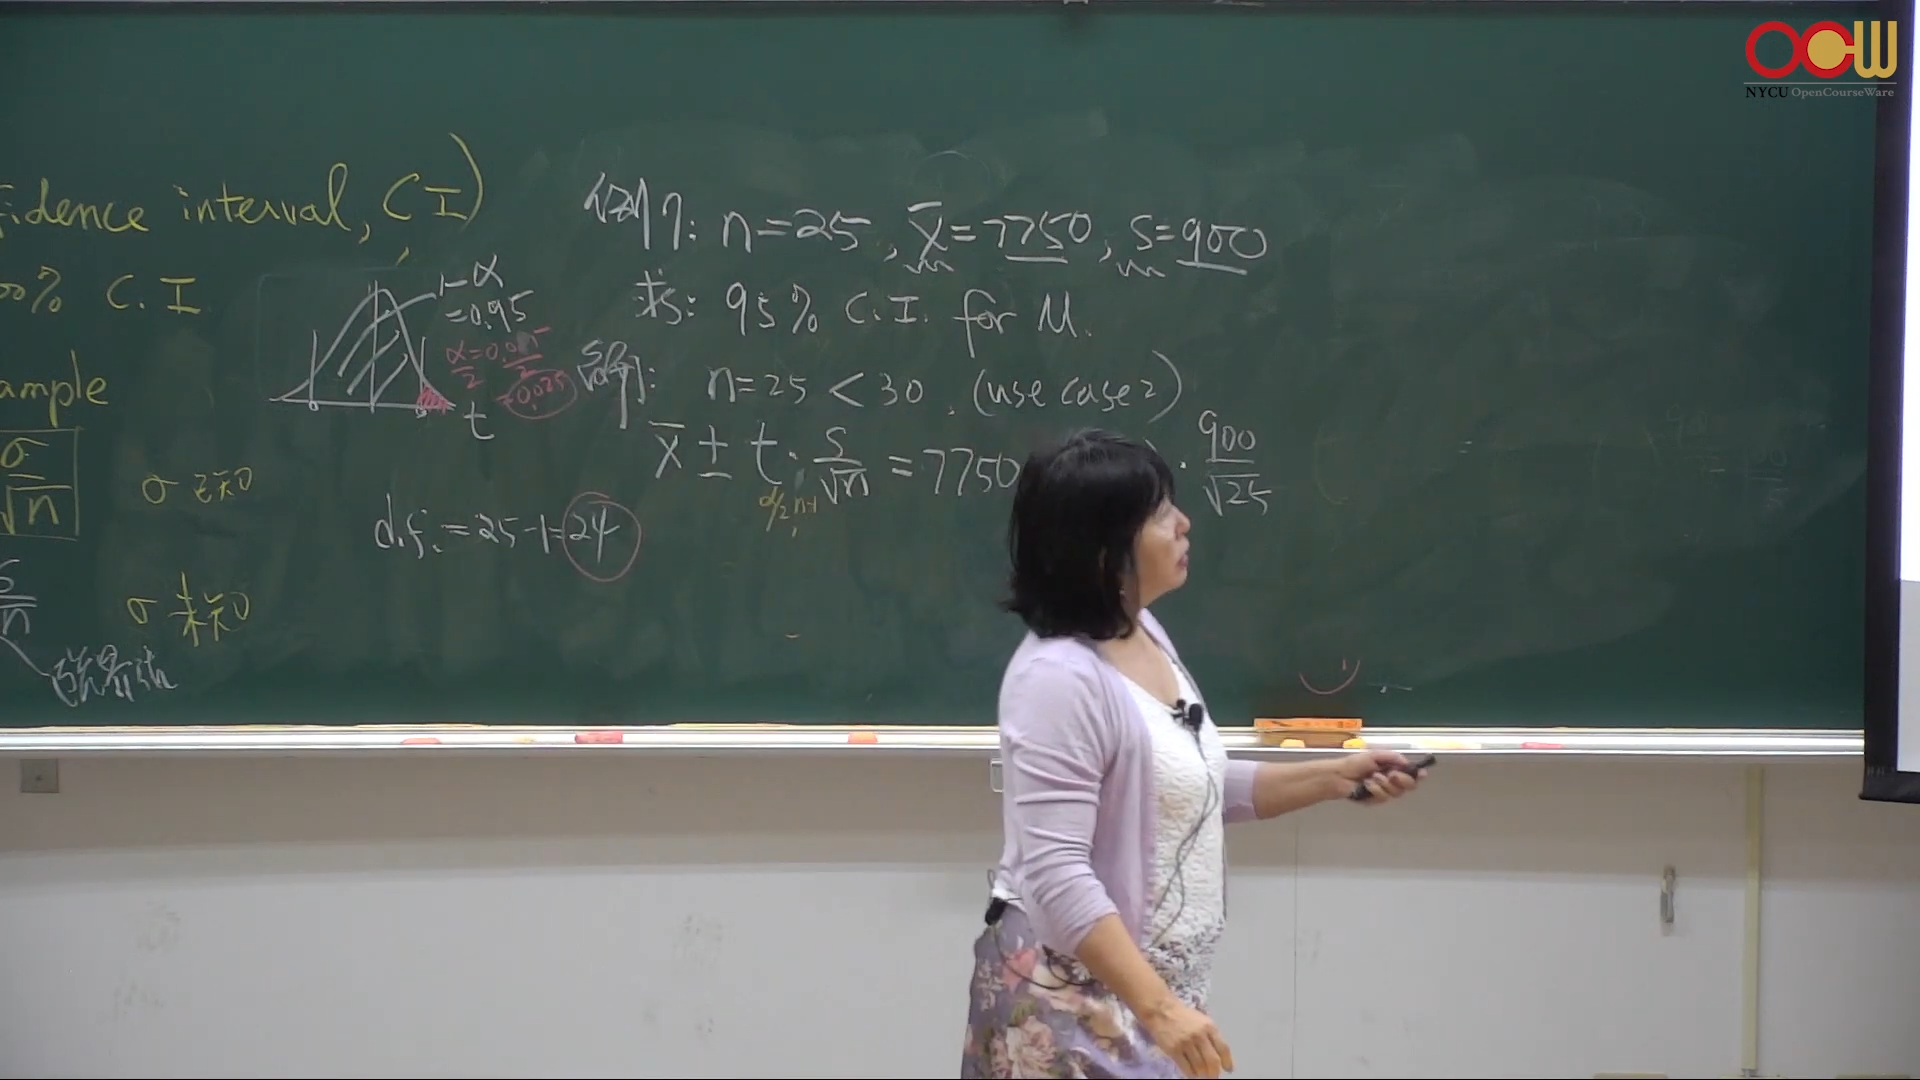 OCW
NYCU OpenCourseWare
fidence interval, CI)
00% C.I.
ample
σ
√n
σ 已知
s
n
σ 未知
臨界值
1-α
=0.95
α/2 = 0.05/2
=0.025
t
d.f. = 25-1=24
例7: n=25, x̄=7750, s=900
求: 95% C.I. for μ.
n=25 < 30. (use case 2)
x̄ ± t α/2, n-1 · s/√n = 7750
· 900/√25